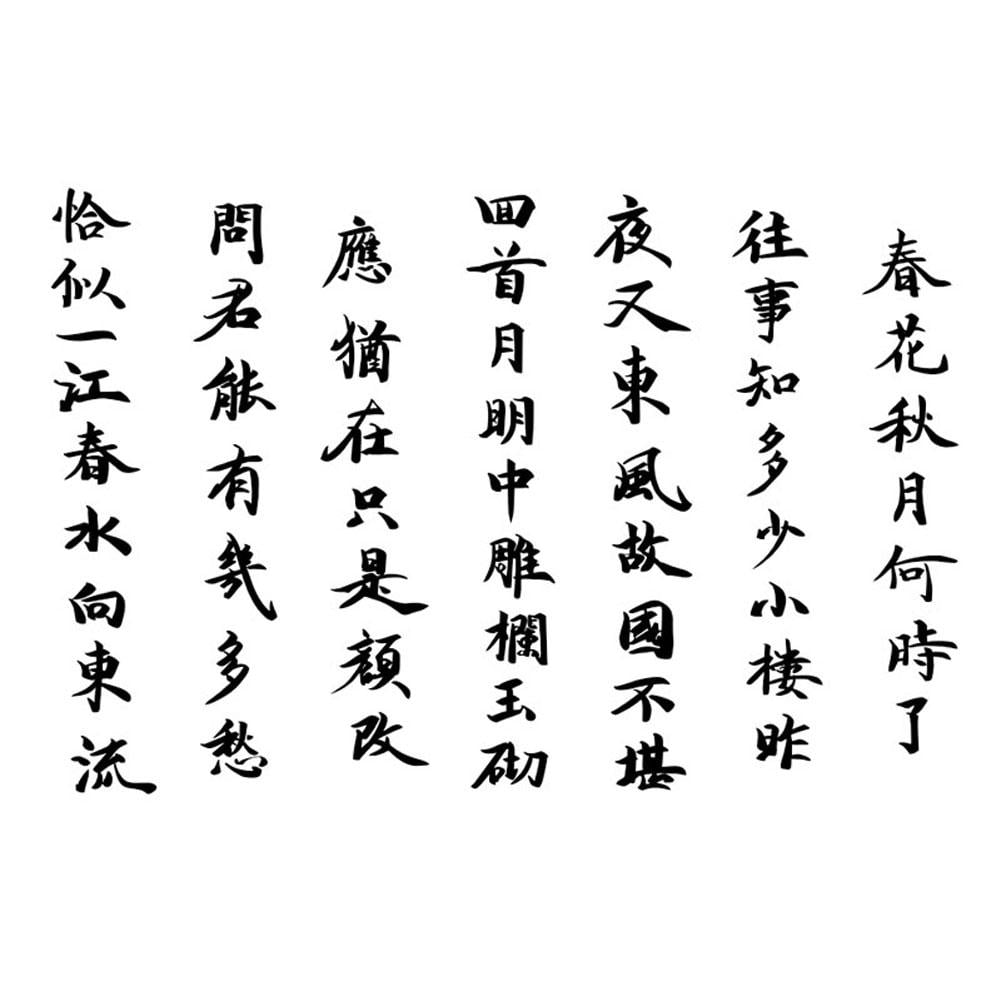 春花秋月何時了
往事知多少小樓昨
夜又東風故國不堪
回首月明中雕欄玉砌
應猶在只是顏改
問君能有幾多愁
恰似一江春水向東流